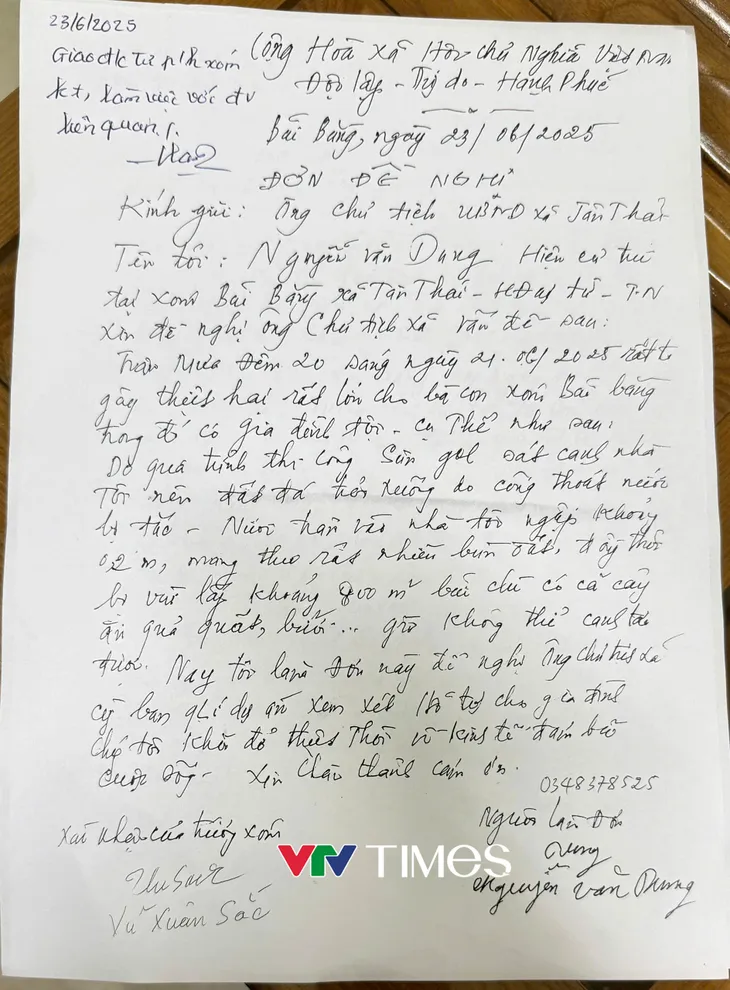 23/6/2025
Giao đ/c Tư p/h xóm
kt, làm việc với đv
liên quan ./.
Cộng Hoà xã Hội chủ Nghĩa Việt Nam
Độc lập - Tự do - Hạnh Phúc
Bãi Bằng, ngày 23/06/2025
ĐƠN ĐỀ NGHỊ
Kính gửi: Ông chủ tịch UBND xã Tân Thái
Tên tôi: Nguyễn Văn Dung Hiện cư trú
tại xóm Bãi Bằng xã Tân Thái - H Đại từ - T-N
xin đề nghị ông Chủ tịch xã vấn đề sau:
Trận Mưa Đêm 20 sáng ngày 21.06/2025 rất to
gây thiệt hại rất lớn cho bà con xóm Bãi bằng
trong đó có gia đình tôi - cụ Thể như sau:
Do quá trình thi công Sân gol sát cạnh nhà
Tôi nên đất đá trôi xuống do cống thoát nước
bị tắc - Nước tràn vào nhà tôi ngập khoảng
0,2 m, mang theo rất nhiều bùn đất, đồng thời
bị vùi lấp khoảng 800 m² bưởi chè có cả cây
ăn quả quất, bưởi... giờ không thể canh tác
được. Nay tôi làm Đơn này đề nghị Ông chủ tịch xã
cùng ban qLí dự án xem xét Hỗ trợ cho gia đình
chúng tôi khỏi đỡ thiệt Thòi về kinh tế đảm bảo
cuộc sống - Xin chân thành cảm ơn.
0348378525
Người làm Đơn
Dung
Nguyễn Văn Dung
Xác nhận của trưởng xóm
Vũ Xuân Sắc
VTV TIMES